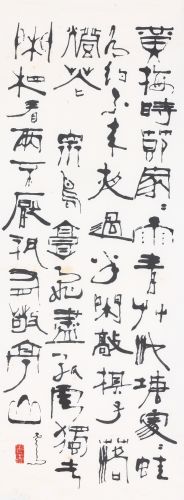 黄梅時節家〻雨青艸池塘處〻蛙
有約不来夜過半閑敲棋子落
燈花　衆鳥高飛盡孤雲獨去
閑相看兩不厭祇有敬亭山